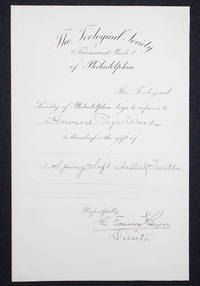 The Zoological Society
(Fairmount Park)
of Philadelphia
The Zoological
Society of Philadelphia begs to express to
Howard Page Wood
its thanks for the gift of
1 Spiny Soft shelled Turtle
Respectfully
Director